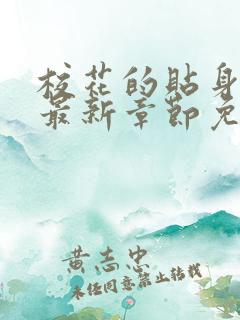 校花的贴身
最新章节免
黄志忠
未经同意禁止转载